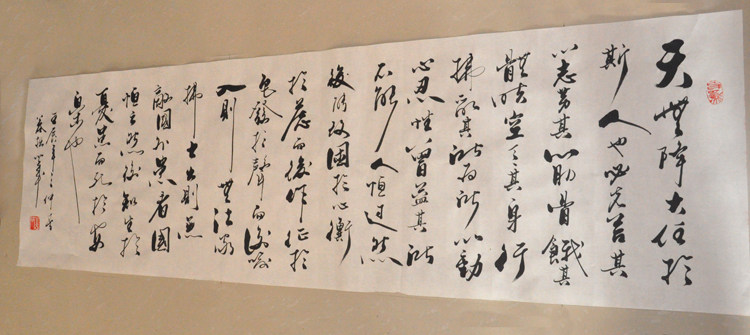 天降大任於
斯人也必先苦其
心志勞其筋骨餓其
體膚空乏其身行
拂亂其所為所以動
心忍性曾益其所
不能人恒過然
後能改困於心衡
於慮而後作征於
色發於聲而後喻
入則無法家
拂士出則無
敵國外患者國
恒亡然後知生於
憂患而死於安
樂也
壬辰年之仲